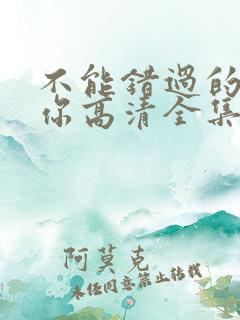 不能错过的
你高清全集
阿莫克
未经同意禁止转载